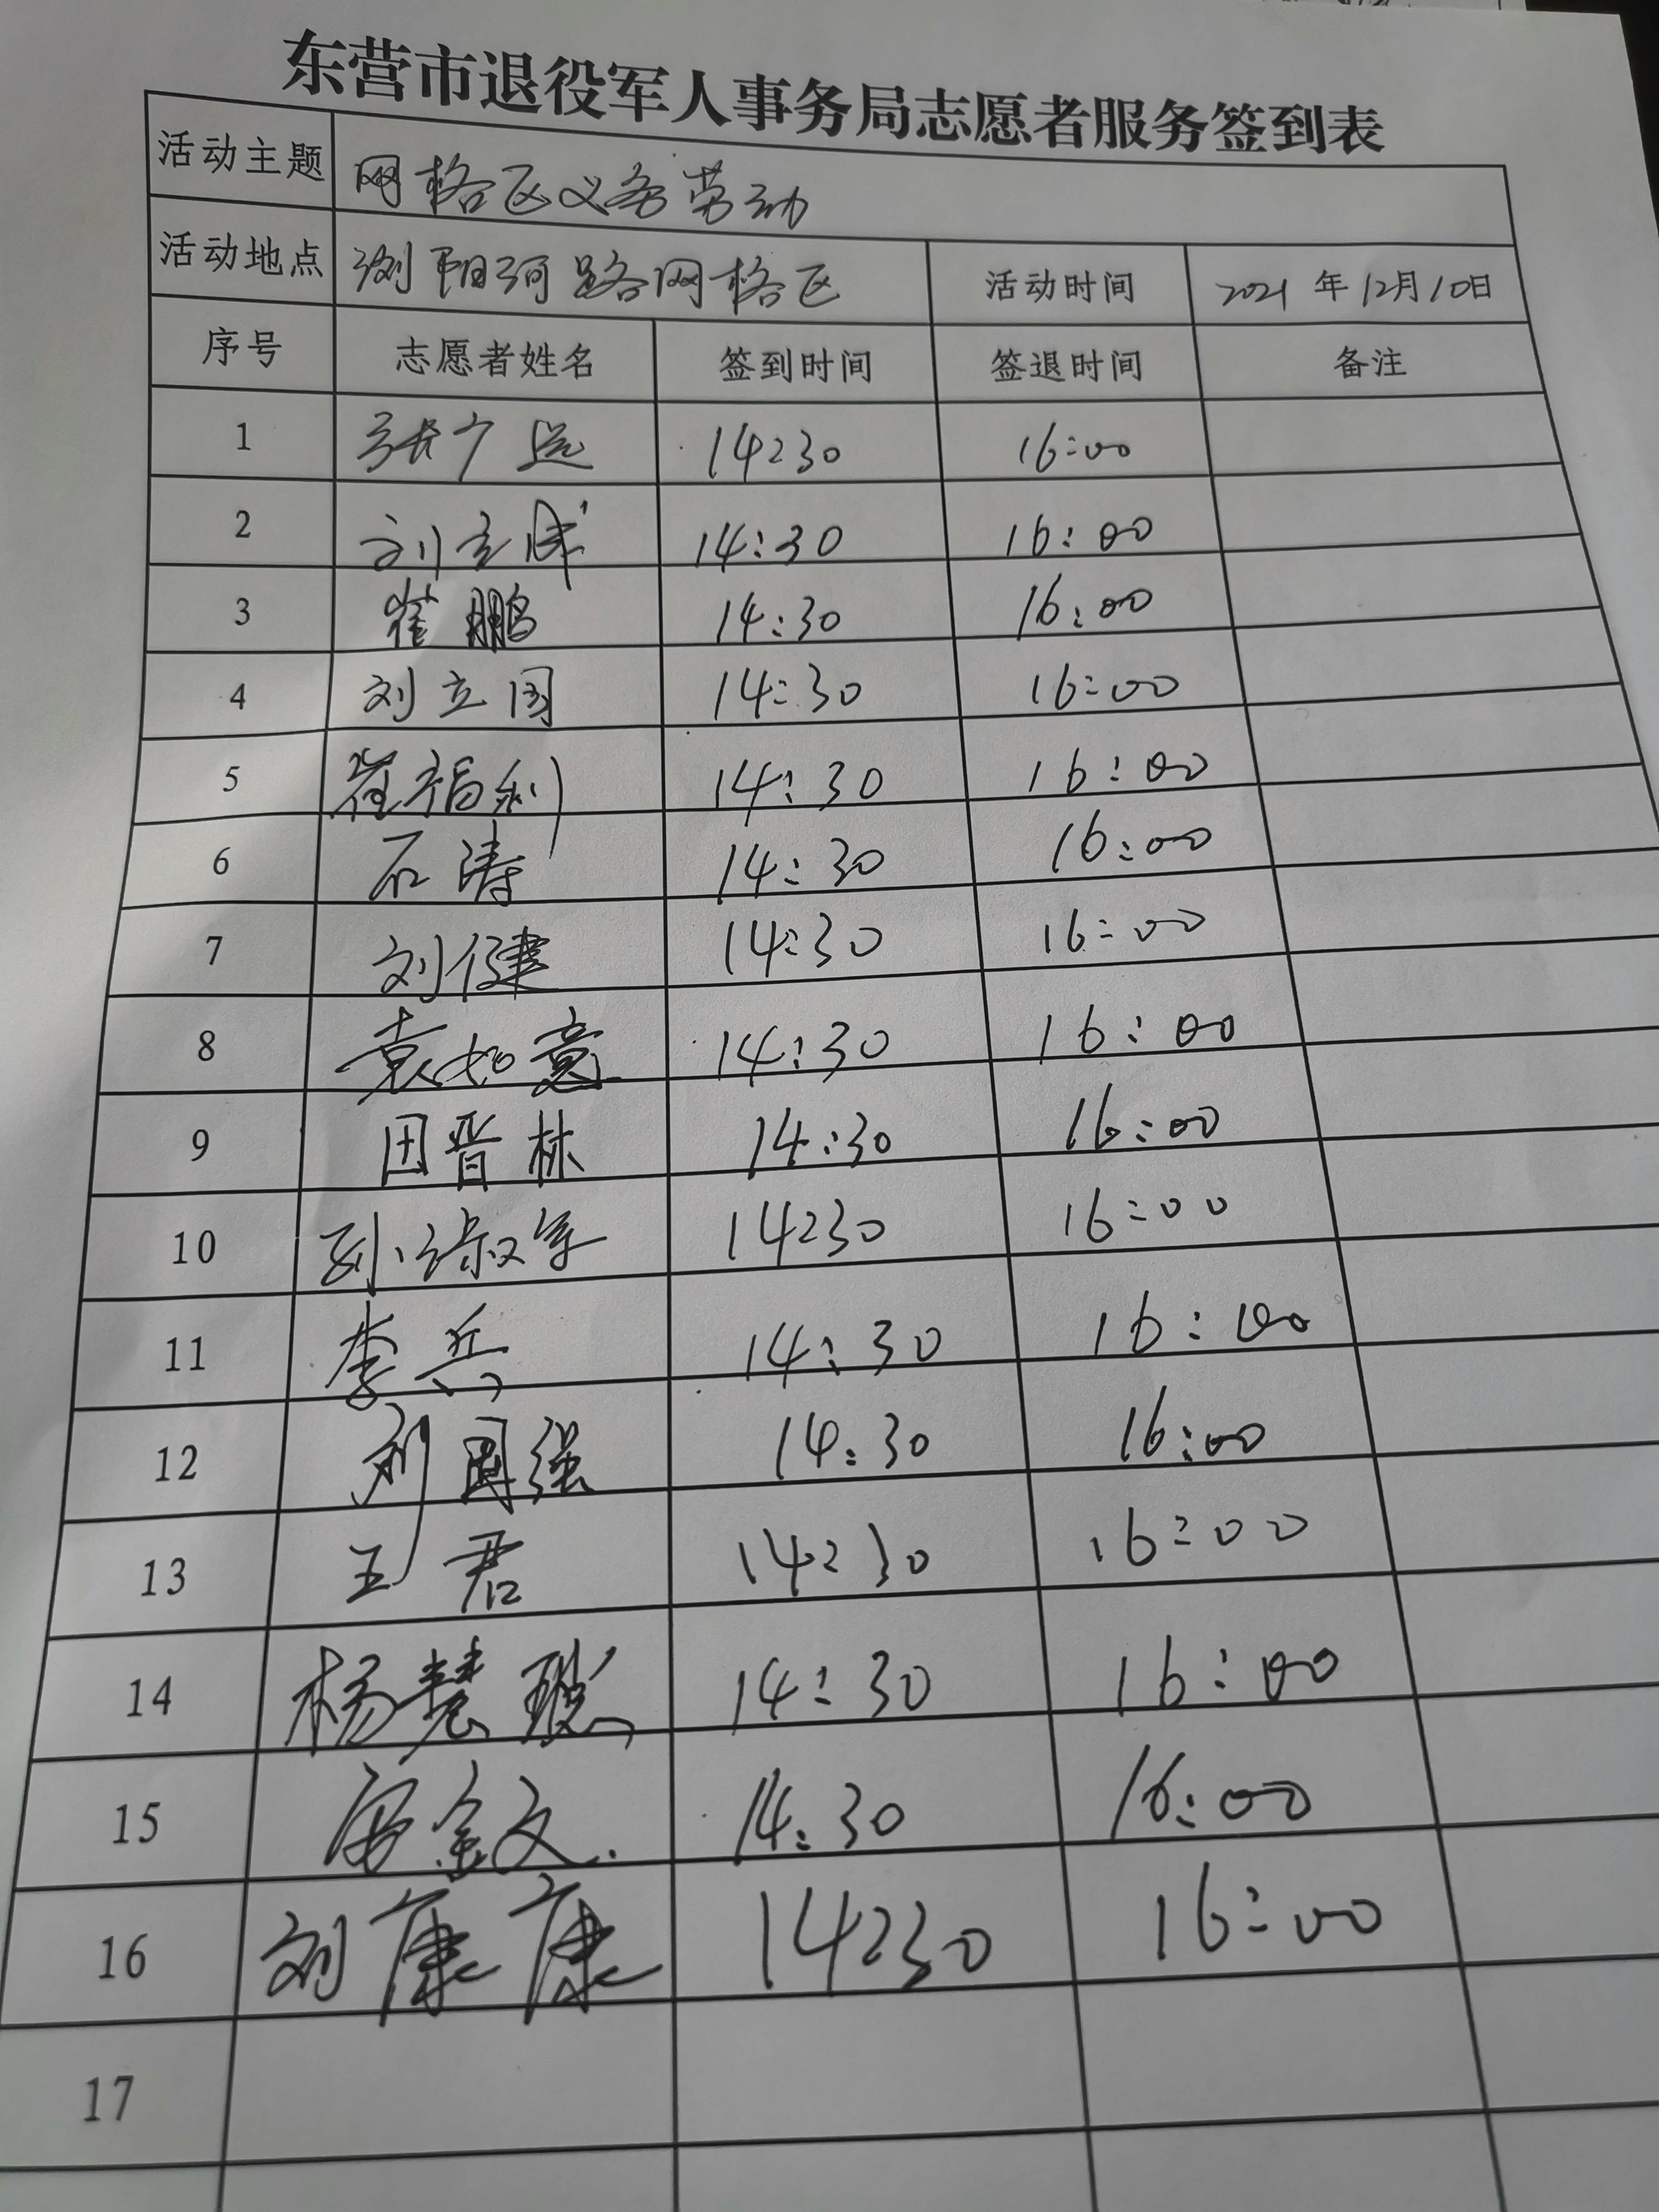 东营市退役军人事务局志愿者服务签到表
活动主题 网格区义务劳动
活动地点 浏阳河路网格区 活动时间 2021年12月10日
序号 志愿者姓名 签到时间 签退时间 备注
1 张广运 14:30 16:00
2 刘 14:30 16:00
3 崔鹏 14:30 16:00
4 刘立国 14:30 16:00
5 崔福利 14:30 16:00
6 石涛 14:30 16:00
7 刘健 14:30 16:00
8 袁如意 14:30 16:00
9 田晋林 14:30 16:00
10 14:30 16:00
11 李兵 14:30 16:00
12 刘国强 14:30 16:00
13 王君 14:30 16:00
14 杨慧 14:30 16:00
15 金文 14:30 16:00
16 刘康康 14:30 16:00
17